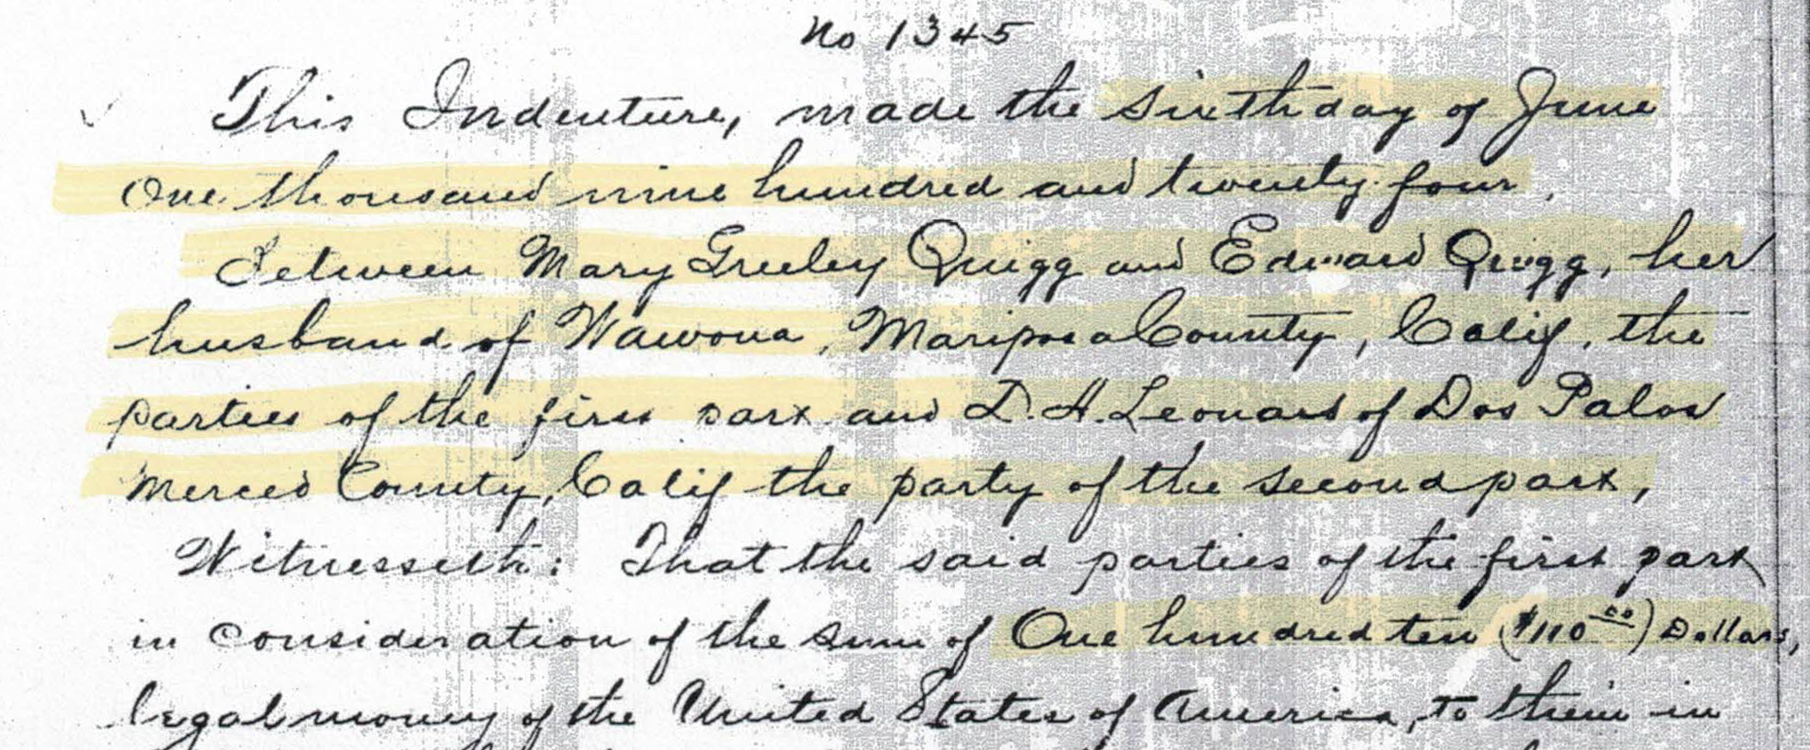 No 1345
This Indenture, made the sixth day of June
One thousand nine hundred and twenty four,
Between Mary Greeley Quigg and Edward Quigg, her
husband of Wawona, Mariposa County, Calif, the
parties of the first part and D. H. Leonard of Dos Palos
Merced County, Calif the party of the second part,
Witnesseth: That the said parties of the first part
in consideration of the sum of One hundred ten ($110 00) Dollars,
legal money of the United States of America, to them in